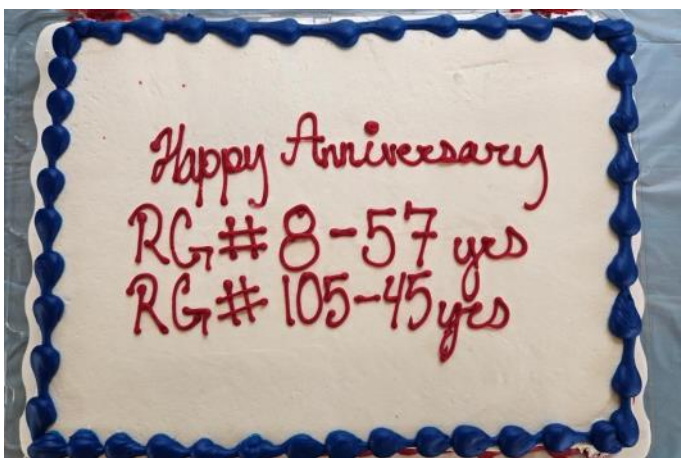 Happy Anniversary
RG# 8-57 yrs
RG# 105-45 yrs